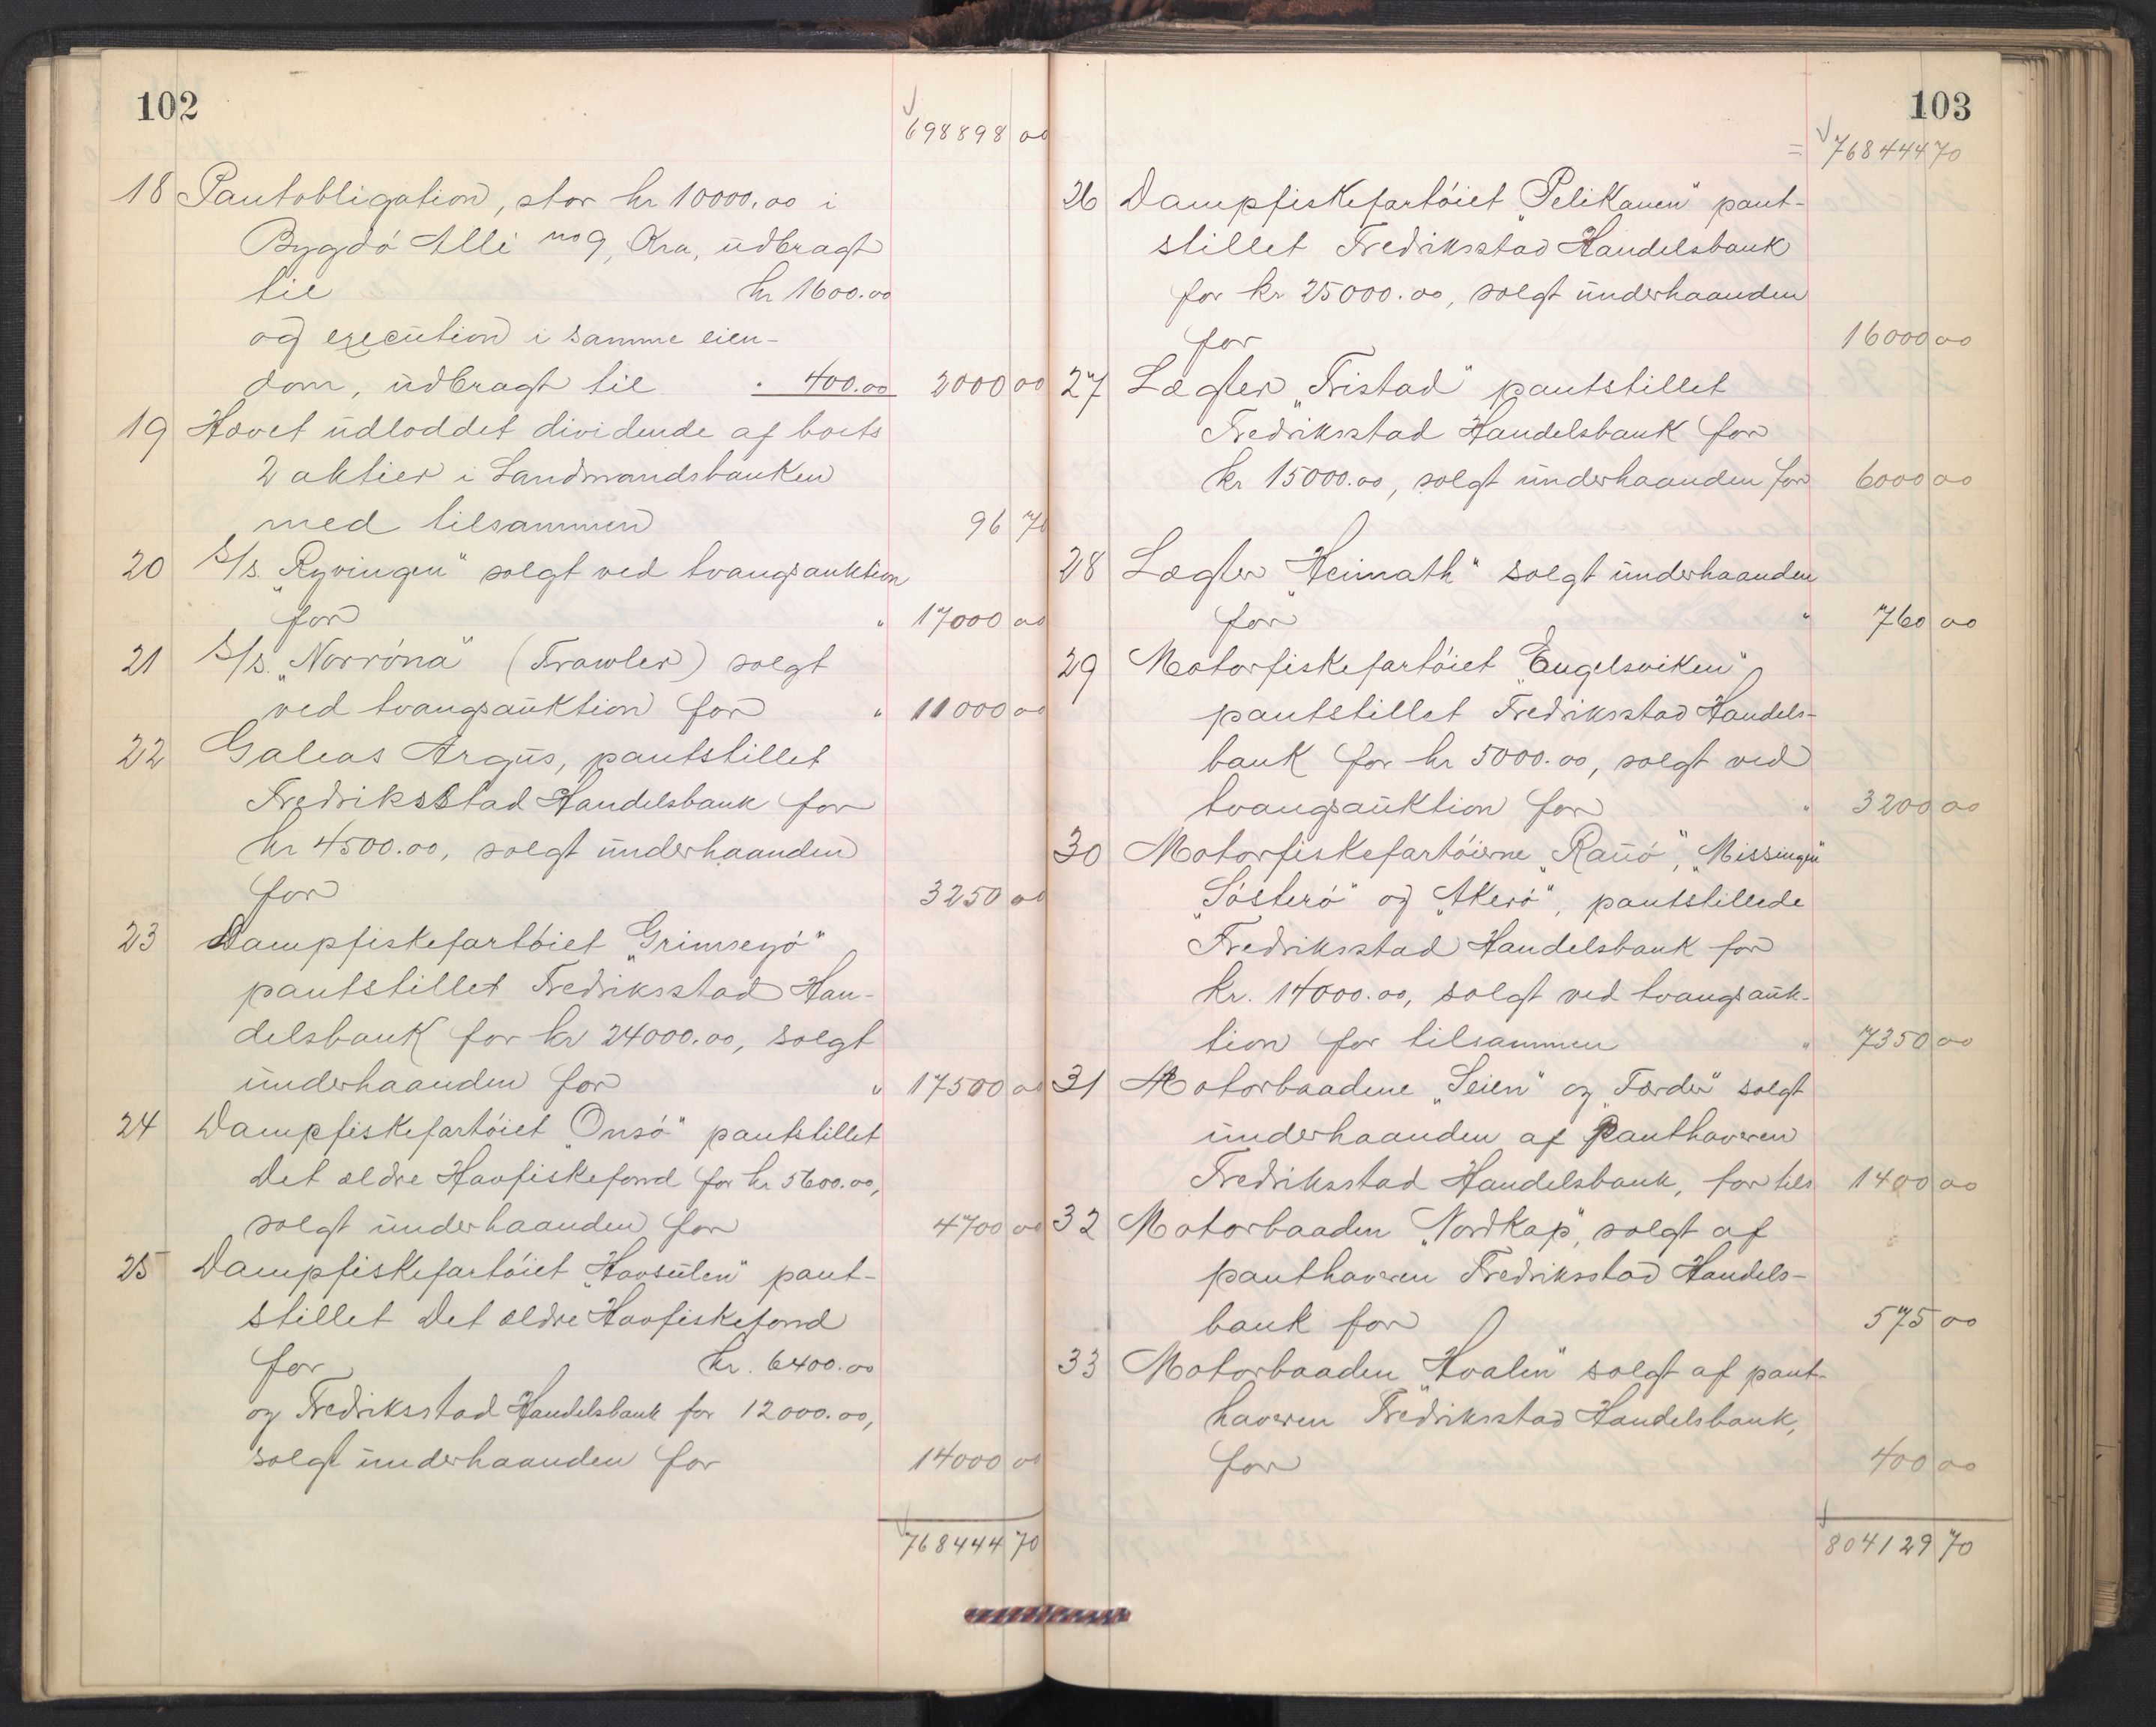 102
698898 00
18 Pantobligation, stor kr 10000.00 i
Bygdö Allé no 9, Kra, udbragt
til kr 1600.00
og execution i samme eien-
dom, udbragt til " 400.00 2000 00
19 Hævet udloddet dividende af boets
2 aktier i Landmandsbanken
med tilsammen 96 70
20 S/s. „Ryvingen" solgt ved tvangsauktion
for " 17000 00
21 S/s. „Norröna" (Trawler) solgt
ved tvangsauktion for " 11000 00
22 Galeas Argus, pantstillet
Fredriksstad Handelsbank for
kr 4500.00, solgt underhaanden
for 3250 00
23 Dampfiskefartöiet „Grimseyö"
pantstillet Fredriksstad Han-
delsbank for kr 24000.00, solgt
underhaanden for " 17500 00
24 Dampfiskefartöiet „Onsö" pantstillet
Det ældre Havfiskefond for kr 5600.00,
solgt underhaanden for 4700 00
25 Dampfiskefartöiet „Havsulen" pant-
stillet Det ældre Havfiskefond
for kr. 6400.00
og Fredriksstad Handelsbank for 12000.00,
solgt underhaanden for 14000 00
768444 70
103
= 768444 70
26 Dampfiskefartöiet „Pelikanen" pant-
stillet Fredriksstad Handelsbank
for kr 25000.00, solgt underhaanden
for 16000 00
27 Lægter „Tristad" pantstillet
Fredriksstad Handelsbank for
kr 15000.00, solgt underhaanden for 6000 00
28 Lægter „Heimath" solgt underhaanden
for " 760 00
29 Motorfiskefartöiet „Engelsviken"
pantstillet Fredriksstad Handels-
bank for kr 5000.00, solgt ved
tvangsauktion for " 3200 00
30 Motorfiskefartöierne „Rauö", „Missingen"
„Sösterö" og „Akerö", pantstillede
Fredriksstad Handelsbank for
kr. 14000.00, solgt ved tvangsauk-
tion for tilsammen " 7350 00
31 Motorbaadene „Seien" og „Færder" solgt
underhaanden af Panthaveren
Fredriksstad Handelsbank, for tils 1400 00
32 Motorbaaden „Nordkap", solgt af
panthaveren Fredriksstad Handels-
bank for 575 00
33 Motorbaaden „Hvalen" solgt af pant-
haveren Fredriksstad Handelsbank,
for 400 00
804129 70